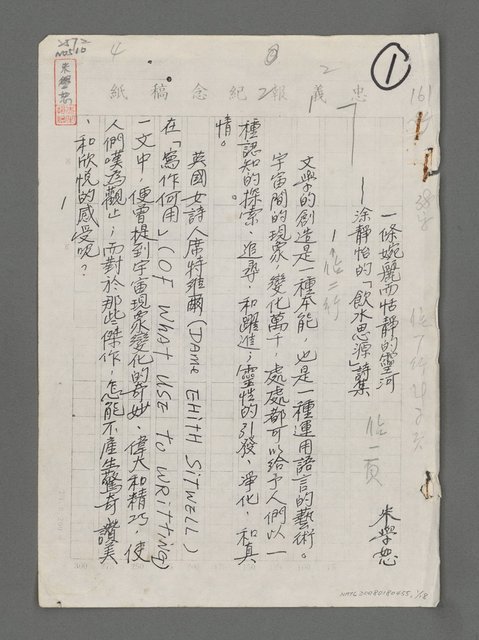 忠義報紀念稿紙
①
一條婉麗而恬靜的靈河
——涂靜怡的「飲水思源」詩集
朱學恕
文學的創造是一種本能，也是一種運用語言的藝術。
宇宙間的現象，變化萬千，處處都可以給予人們以一
種認知的探索、追尋，和躍進；靈性的引發、淨化，和真
情。
英國女詩人席特維爾(DAME EHITH SITWELL)
在「寫作何用」(OF WHAT USE TO WRITTING)
一文中，便曾提到宇宙現象變化的奇妙、偉大和精巧，使
人們嘆為觀止，而對於那些傑作，怎能不產生驚奇、讚美
、和欣悅的感受呢？
佔一頁
佔二行
4
2
朱學恕
NMTL20080180455, 1/18